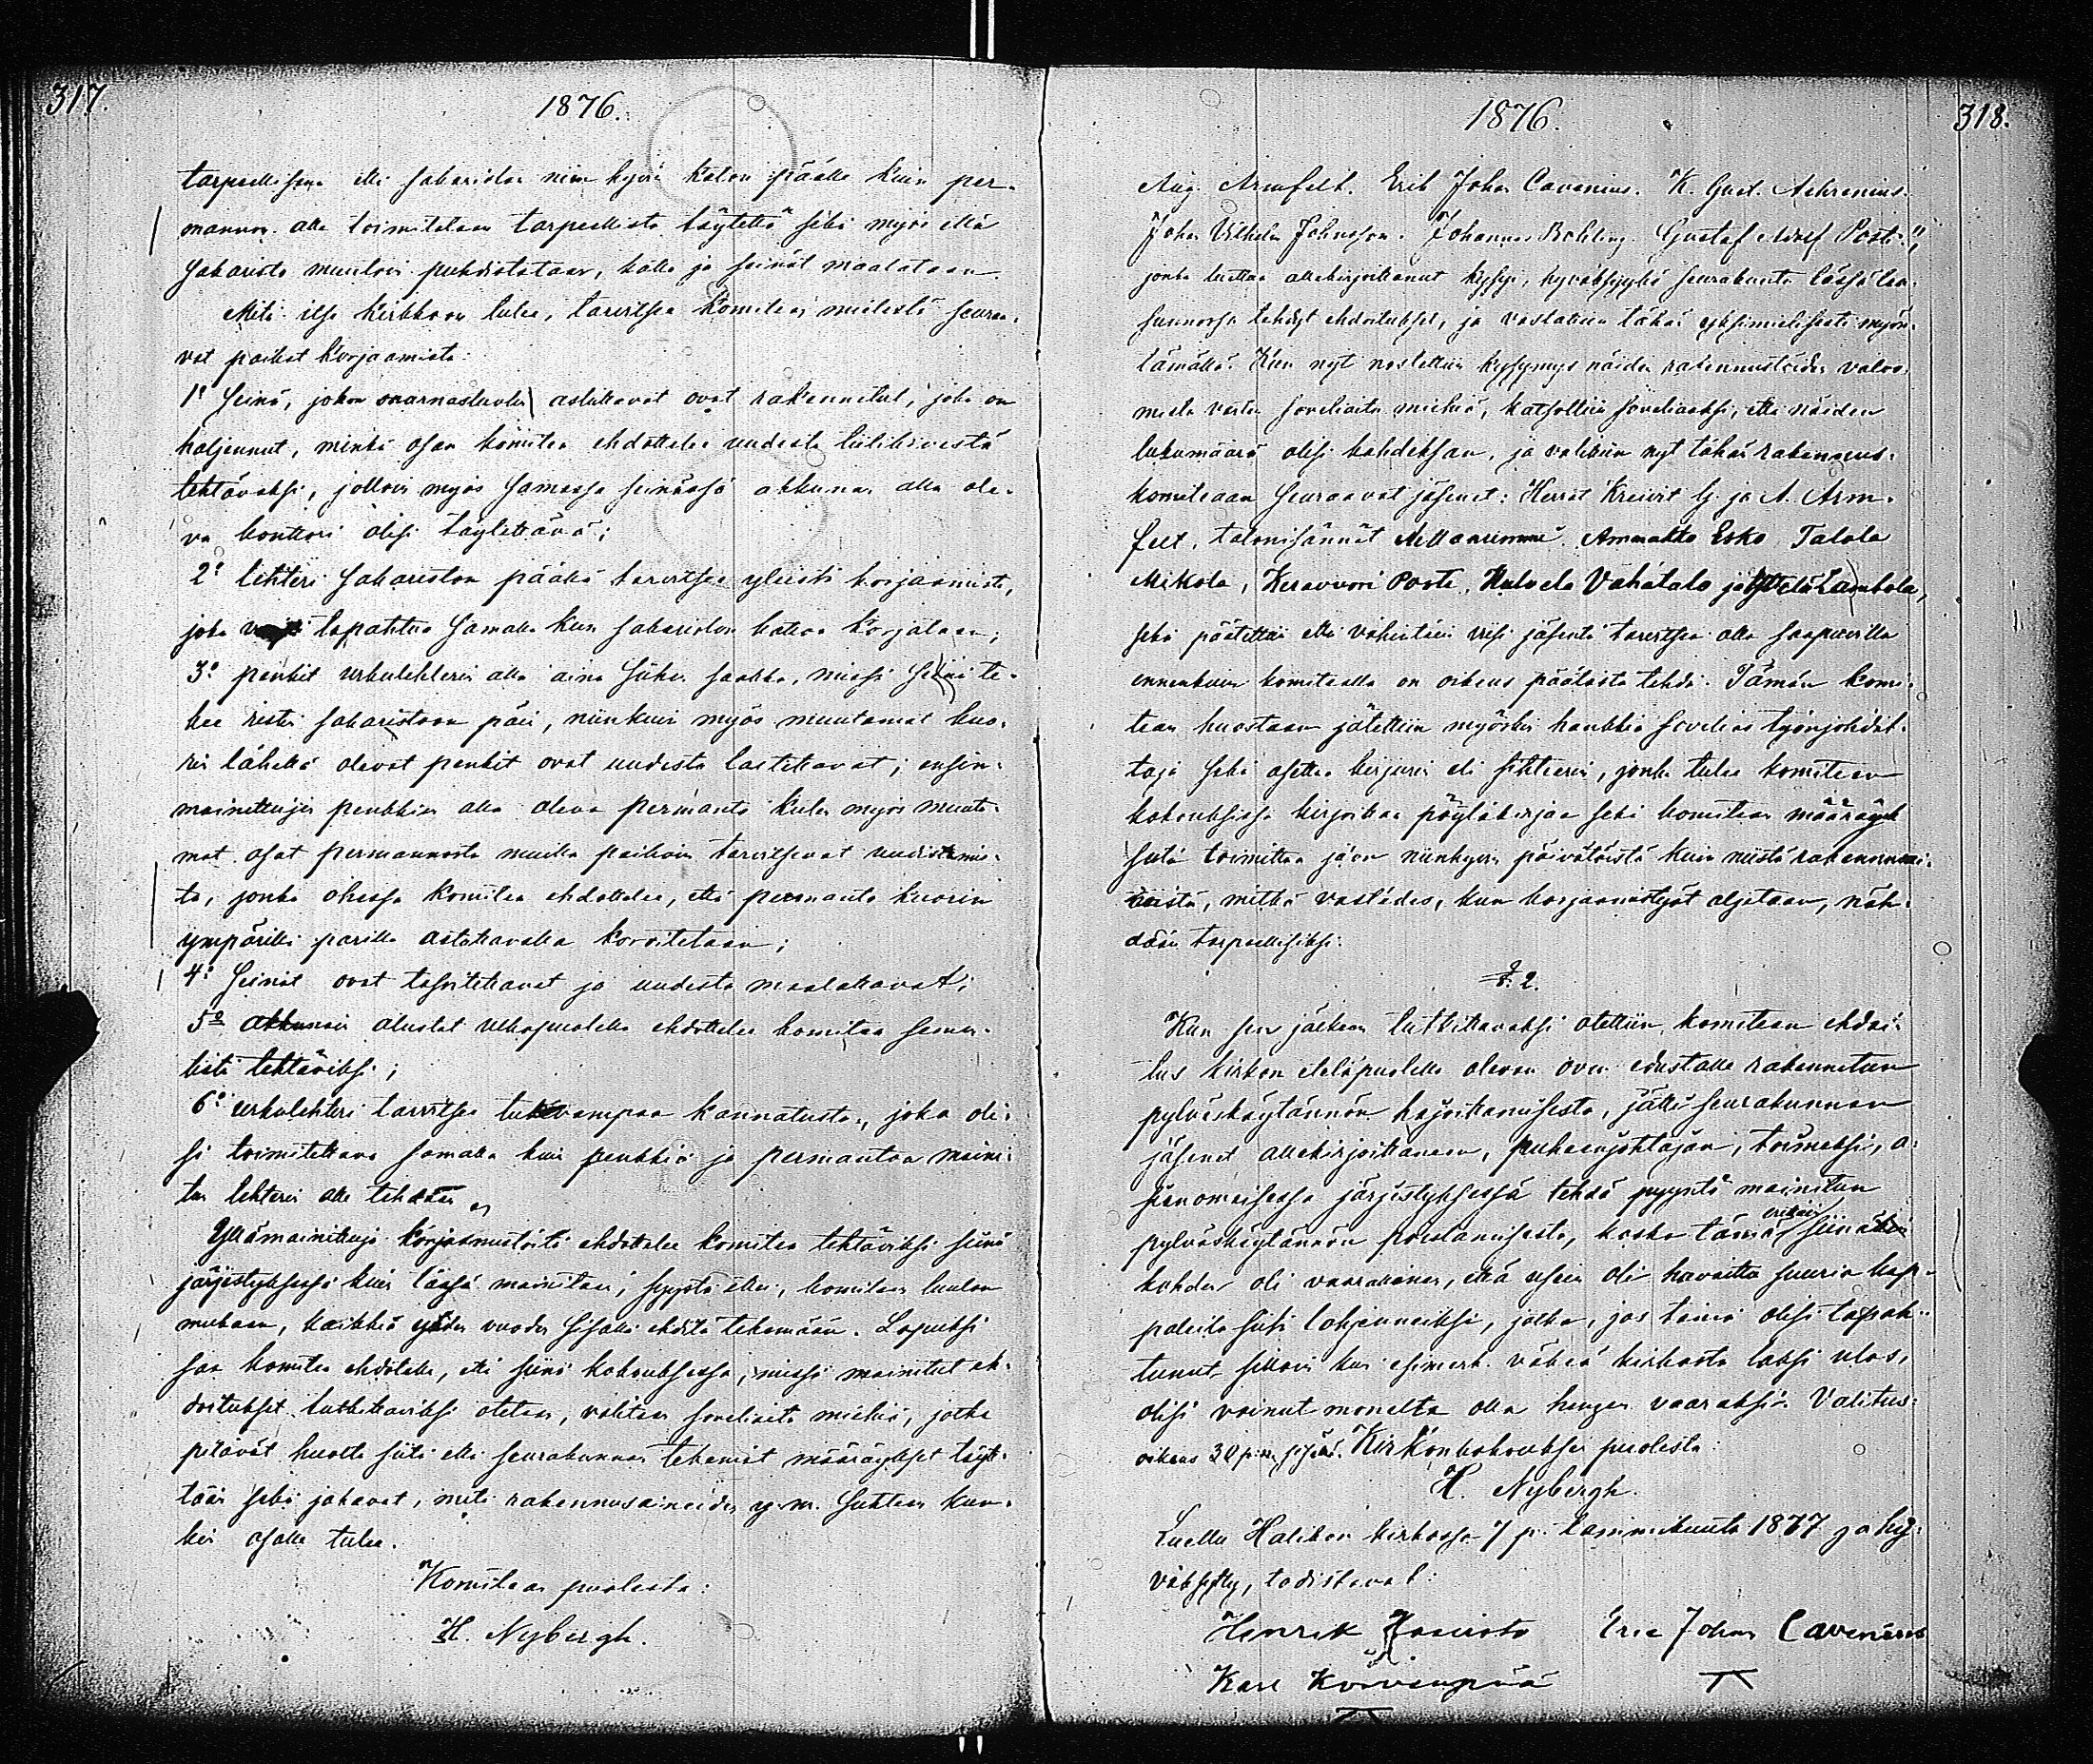 317.
1876.
tarpeellisena että sakaristoa niin hyvin katon päälle kuin per-
mannon alle toimitetaan tarpeellista täytettä sekä myös että
Sakaristo muutoin puhdistetaan, katto ja seinät maalataan.
Mitä itse kirkkoon tulee, tarvitsee komitean mielestä seuraa-
vat paikat korjaamista:
1º Seinä, johon saarnastuolin astuttavat ovat rakennetut, joka on
haljennut, minkä osan komitea ehdottelee uudesta tiilikivestä
tehtäväksi, jolloin myös samassa seinässä akkunan alla ole-
va konttori olisi täytettävä;
2º lehteri sakariston päällä tarvitsee yleistä korjaamista,
joka tapahtuu samalla kun sakariston kattoa korjataan;
3º penkit urkulehterin alla aina siihen saakka, missä seinä te-
kee ristin sakaristoon päin, niinkuin myös muutamat kuo-
rin lähellä olevat penkit ovat uudesta laitettavat; ensin-
mainittujen penkkien alla oleva permanto kuten myös muuta-
mat osat permannosta muilla paikoin tarvitsevat uudistamis-
ta, jonka ohessa komitea ehdottelee, että permanto kuorin
ympärillä parilla astuttavalla koroitetaan;
4º Seinät ovat tasoitettavat ja uudesta maalattavat;
5º akkunain alustat ulkopuolella ehdottelee komitea semen-
tistä tehtäviksi;
6º urkulehteri tarvitsee tukevampaa kannatusta, joka oli-
si toimitettava samalla kuin penkkiä ja permantoa maini-
tun lehterin alle tehdään.
Yllämainittuja korjaustöitä ehdottelee komitea tehtäviksi siinä
järjestyksessä kuin tässä mainitaan, syystä ettei, komitean luulon
mukaan, kaikkia yhden vuoden sisällä ehditä tekemään. Lopuksi
saa komitea ehdotella, että siinä kokouksessa, missä mainitut eh-
doitukset tutkittaviksi otetaan, valitaan soveliaita miehiä, jotka
pitävät huolta siitä että seurakunnan tekemät määräykset täyte-
tään sekä jakavat, mitä rakennusaineiden y.m. suhteen kun-
kin osalle tulee.
Komitean puolesta:
H. Nybergh.
1876.
318.
Aug. Armfelt. Erik Johan Cavenius. K. Gust. Aehrenius.
Johan Vilhelm Johnsson. Johannes Bohling. Gustaf Adolf Posti.",
jonka luettua allekirjoittanut kysyi, hyväksyykö seurakunta tässä lau-
sunnossa tehdyt ehdoitukset, ja vastattiin tähän yksimielisesti myön-
tämällä. Kun nyt nostettiin kysymys näiden rakennustöiden valvo-
mista varten soveliaita miehiä, katsottiin soveliaaksi, että näiden
lukumäärä olisi kahdeksan, ja valittiin nyt tähän rakennus-
komiteaan seuraavat jäsenet: Herrat Kreivit G. ja A. Arm-
felt, talonisännät Ammakko Esko, Talola
Mikola, Keravuori Posti, Vähätalo ja
sekä päätettiin että vähintäin viisi jäsentä tarvitsee olla saapuvilla
ennenkuin komitealla on oikeus päätöstä tehdä. Tämän komi-
tean huostaan jätettiin myöskin hankkia sovelias työnjohdat-
taja sekä asettaa kirjurin eli sihteerin, jonka tulee komitean
kokouksissa kirjoittaa pöytäkirjaa sekä komitean määräyk-
sestä toimittaa jaon niinhyvin päivätöistä kuin niistä rakennusai-
neista, mitkä vastedes, kun korjaamistyöt aljetaan, näh-
dään tarpeellisiksi.
§. 2.
Kun sen jälkeen tutkittavaksi otettiin komitean ehdoi-
tus kirkon eteläpuolella olevan oven edustalle rakennetun
pylväskäytännön hajoittamisesta, jätti seurakunnan
jäsenet allekirjoittaneen, puheenjohtajan, toimeksi, a-
sianomaisessa järjestyksessä tehdä pyyntö mainitun
pylväskäytännön poistamisesta, koska tämä erikoin siinä
kohden oli vaarallinen, että usein oli havaittu suuria kap-
paleita siitä lohjenneiksi, jotka, jos tämä olisi tapah-
tunut silloin kun esimerk. väkeä kirkosta laksi ulos,
olisi voinut monelta olla hengen vaaraksi. Valitus-
oikeus 30 p:n sisään. Kirkonkokouksen puolesta:
H. Nybergh.
Luettu Halikon kirkossa 7 p. tammikuuta 1877 ja hy-
väksytty, todistavat:
Henrik Eric Johan Cavenius
Karl Korvenpää